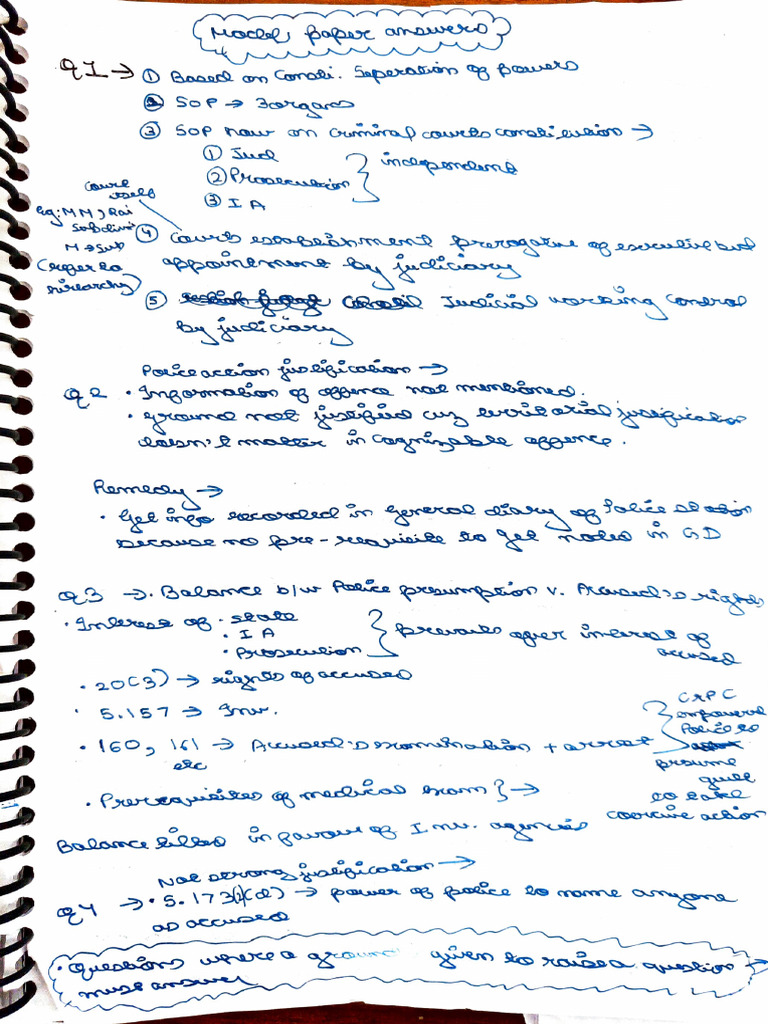 Model paper answers
Q1 → ① Based on Consti. Seperation of powers
② SOP → 3 organs
③ SOP now on criminal courts constitution →
① Jud
② Prosecution } independent
③ IA
Court itself
Eg: MM, Rai
Subdivi
M → Sub
(refer to hirarchy)
④ Courts establishment prerogative of executive but
appointment by judiciary
⑤ Judicial working control
by judiciary
Police action justification →
Q2 • Information of offence not mentioned.
• Ground not justified cuz territorial justification
doesn't matter in cognizable offence.
Remedy →
• Get info recorded in general diary of Police station
because no pre-requisite to get noted in GD
Q3 → • Balance b/w Police presumption v. Accused's rights
• Interest of • state
• IA } prevails over interest of
• Prosecution accused
• 20(3) → rights of accused
• S.157 → Inv.
• 160, 161 → Accused's examination + arrest
etc
CrPC
empowered
Police to
presume
guilt
to take
coercive action
• Prerequisites of medical exam } →
Balance tilted in favour of Inv. agencies
Not strong justification →
Q4 → • S.173(2)(d) → power of police to name anyone
as accused
• Questions where a ground given to raise a question →
must answer